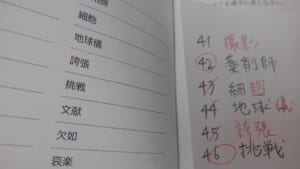 細胞
地球儀
誇張
挑戦
文献
欠如
哀楽
41 撮影
42 薬剤師
43 細胞
44 地球儀
45 誇張
46 挑戦